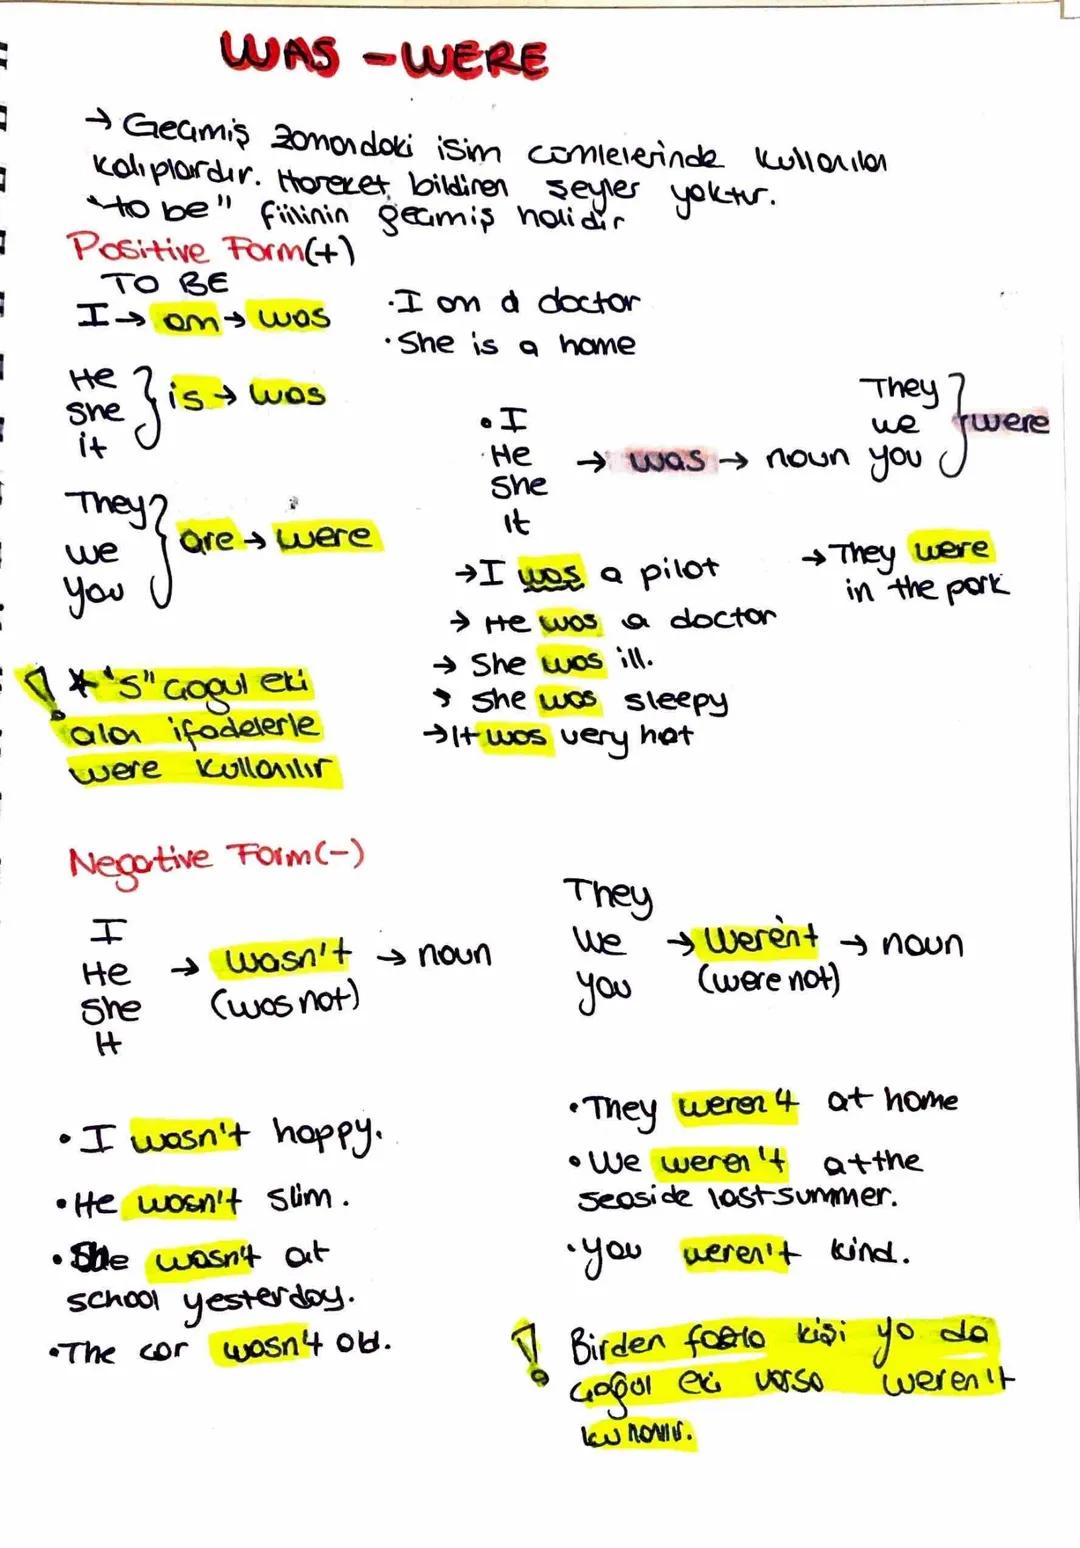 WAS - WERE
→ Geçmiş zamandaki isim cümlelerinde kullanılan
kalıplardır. Hareket bildiren şeyler yoktur.
"to be" fiilinin geçmiş halidir
Positive Form(+)
TO BE
I → am → was
·I am a doctor
·She is a home
He
She
it
} is → was
They
we
you
} are → were
• I
· He
She
It
→ was → noun
They
we
you
} were
→ I was a pilot
→ He was a doctor
→ She was ill.
→ She was sleepy
→ It was very hot
→ They were
in the park
! * "S" çoğul eki
alan ifadelerle
were kullanılır
Negative Form(-)
I
He
She
It
→ wasn't → noun
(was not)
They
we
you
→ weren't → noun
(were not)
• I wasn't happy.
• He wasn't slim.
• She wasn't at
school yesterday.
• The car wasn't old.
• They weren't at home
• We weren't at the
seaside last summer.
• you weren't kind.
! Birden fazla kişi ya da
çoğul eki varsa weren't